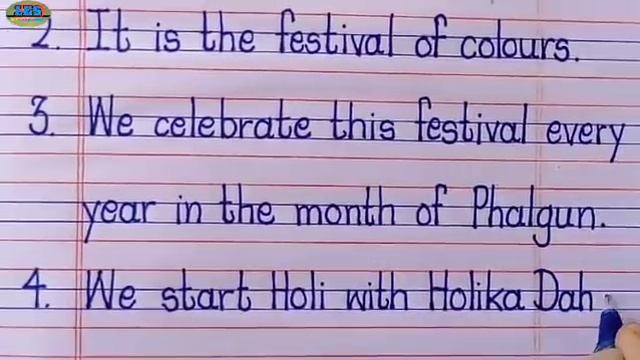 LES
2. It is the festival of colours.
3. We celebrate this festival every
year in the month of Phalgun.
4. We start Holi with Holika Dah